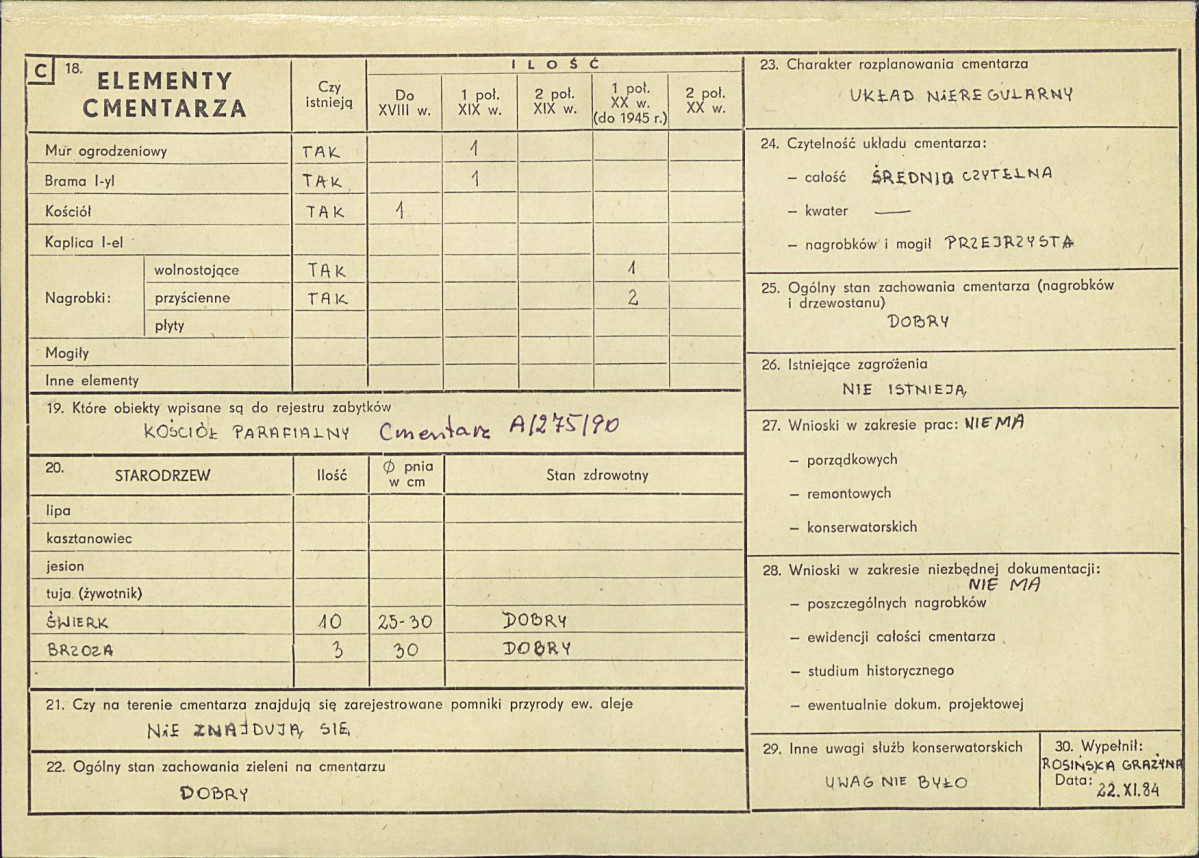 C 18. ELEMENTY CMENTARZA
Czy istnieją
I L O Ś Ć
Do XVIII w.
1 poł. XIX w.
2 poł. XIX w.
1 poł. XX w. (do 1945 r.)
2 poł. XX w.
Mur ogrodzeniowy TAK 1
Brama I-yl TAK 1
Kościół TAK 1
Kaplica I-el
Nagrobki:
wolnostojące TAK 1
przyścienne TAK 2
płyty
Mogiły
Inne elementy
19. Które obiekty wpisane są do rejestru zabytków
KOŚCIÓŁ PARAFIALNY Cmentarz A/275/90
20. STARODRZEW Ilość Ø pnia w cm Stan zdrowotny
lipa
kasztanowiec
jesion
tuja (żywotnik)
ŚWIERK 10 25-30 DOBRY
BRZOZA 3 30 DOBRY
21. Czy na terenie cmentarza znajdują się zarejestrowane pomniki przyrody ew. aleje
NiE ZNAJDUJĄ SIĘ
22. Ogólny stan zachowania zieleni na cmentarzu
DOBRY
23. Charakter rozplanowania cmentarza
UKŁAD NiEREGULARNY
24. Czytelność układu cmentarza:
– całość ŚREDNIO CZYTELNA
– kwater —
– nagrobków i mogił PRZEJRZYSTA
25. Ogólny stan zachowania cmentarza (nagrobków
i drzewostanu)
DOBRY
26. Istniejące zagrożenia
NIE ISTNIEJĄ
27. Wnioski w zakresie prac: NIE MA
– porządkowych
– remontowych
– konserwatorskich
28. Wnioski w zakresie niezbędnej dokumentacji:
NIE MA
– poszczególnych nagrobków
– ewidencji całości cmentarza
– studium historycznego
– ewentualnie dokum. projektowej
29. Inne uwagi służb konserwatorskich
UWAG NIE BYŁO
30. Wypełnił:
ROSIŃSKA GRAŻYNA
Data: 22.XI.84